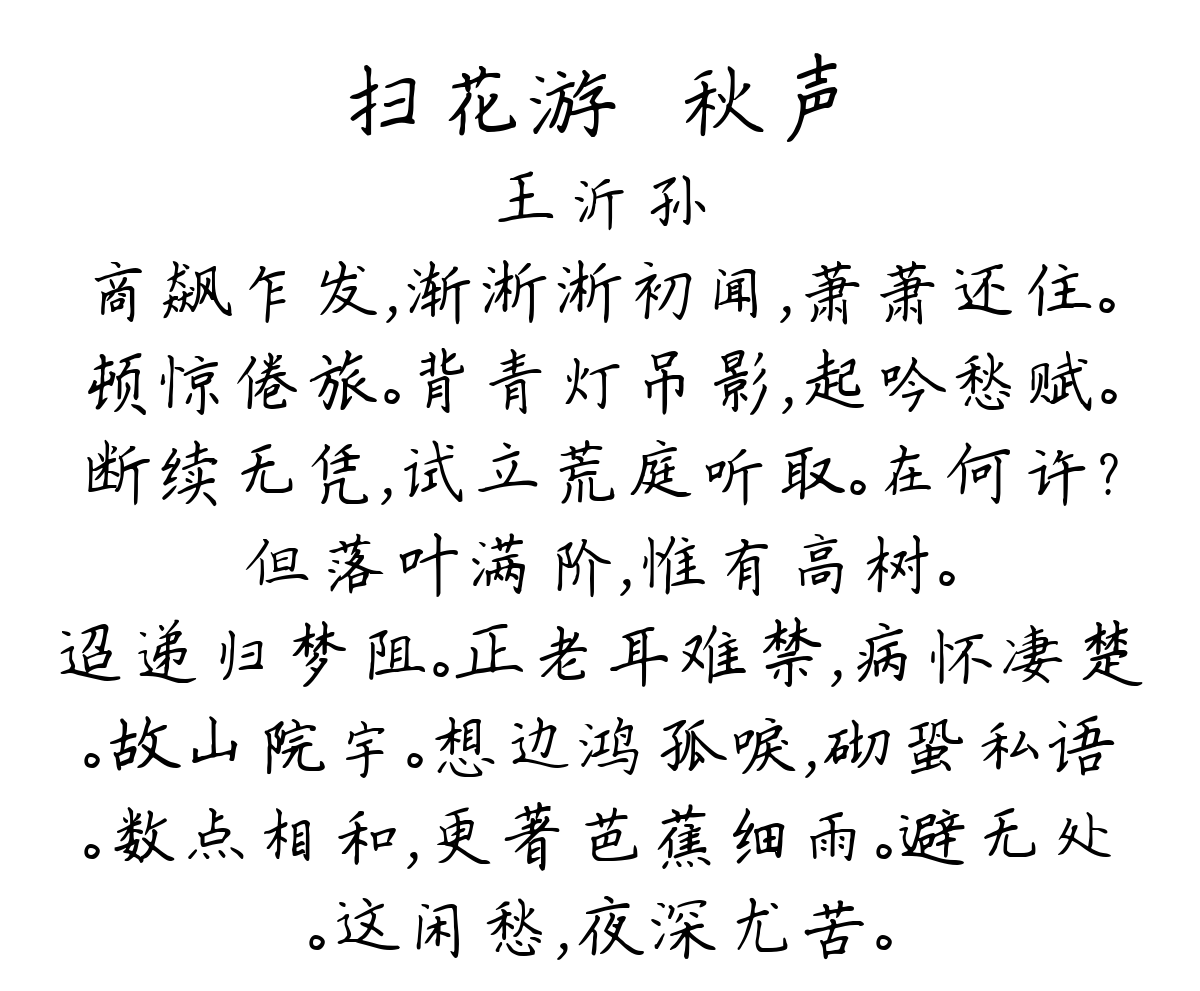 扫花游 秋声
王沂孙
商飙乍发,渐淅淅初闻,萧萧还住。
顿惊倦旅。背青灯吊影,起吟愁赋。
断续无凭,试立荒庭听取。在何许?
但落叶满阶,惟有高树。
迢递归梦阻。正老耳难禁,病怀凄楚
。故山院宇。想边鸿孤唳,砌蛩私语
。数点相和,更著芭蕉细雨。避无处
。这闲愁,夜深尤苦。